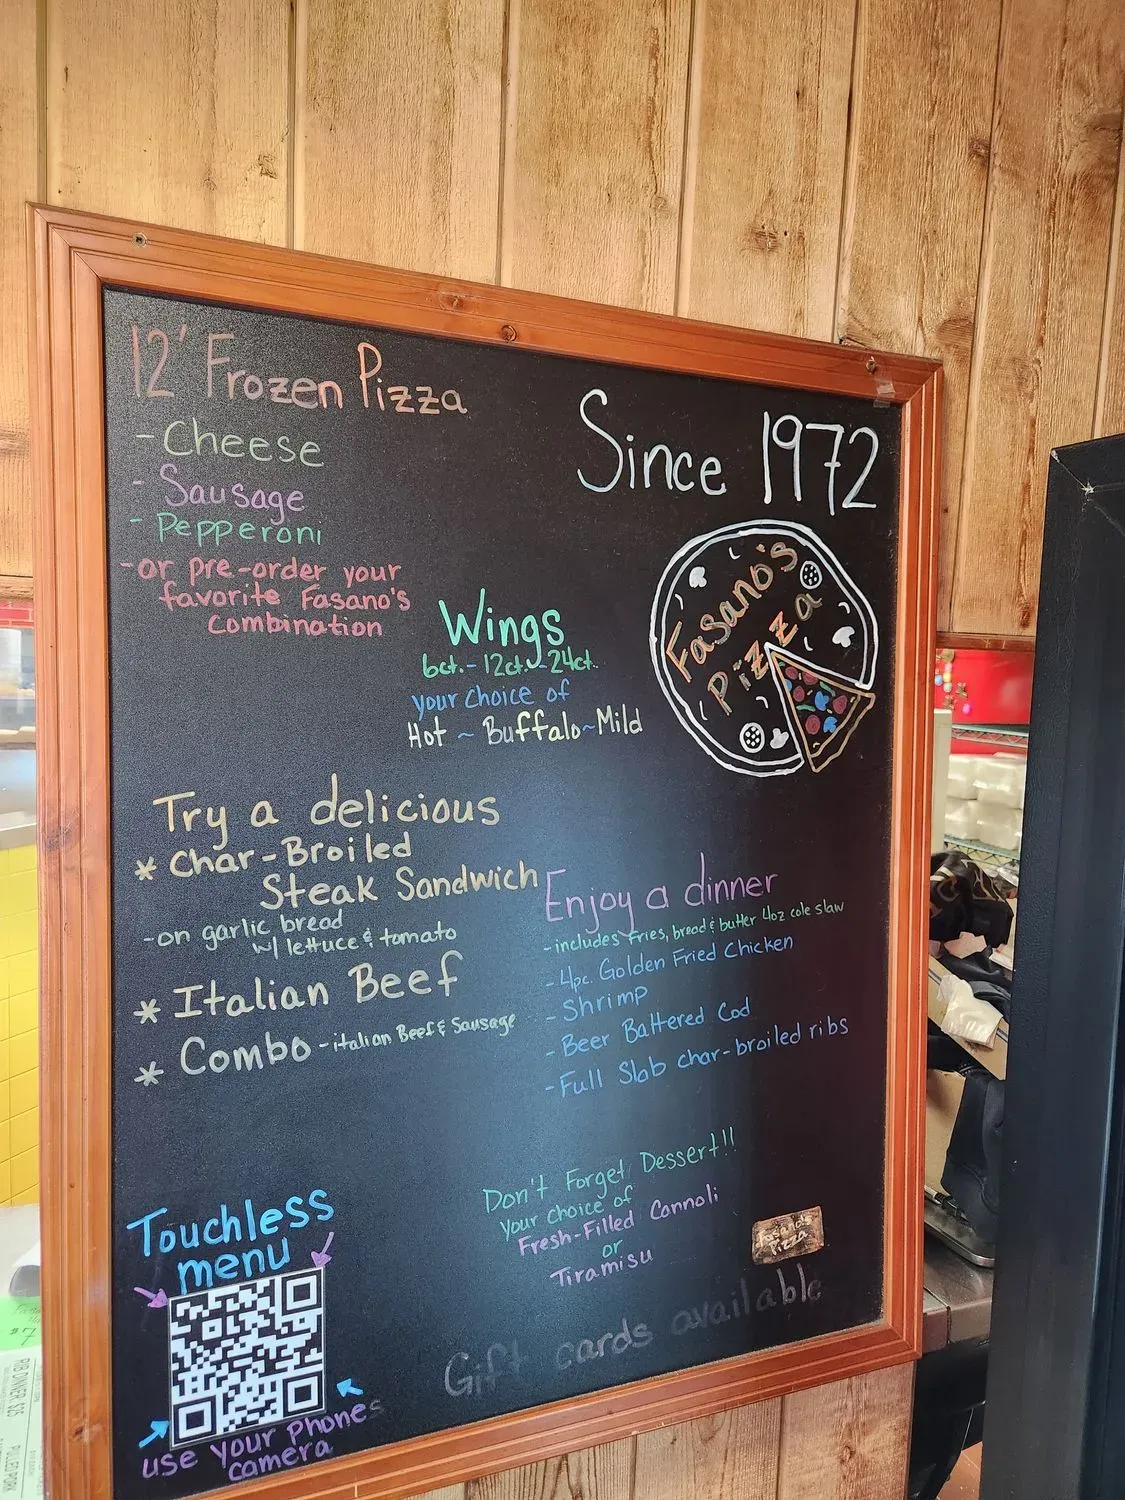 12' Frozen Pizza
- Cheese
- Sausage
- Pepperoni
- or pre-order your
favorite Fasano's
combination
Since 1972
Fasano's
Pizza
Wings
6ct. - 12ct. - 24ct.
your choice of
Hot ~ Buffalo ~ Mild
Try a delicious
* Char-Broiled
Steak Sandwich
- on garlic bread
w/ lettuce & tomato
* Italian Beef
* Combo - italian Beef & Sausage
Enjoy a dinner
- includes fries, bread & butter 4oz cole slaw
- 4pc. Golden Fried Chicken
- Shrimp
- Beer Battered Cod
- Full Slab char-broiled ribs
Don't Forget Dessert!!
your choice of
Fresh-Filled Cannoli
or
Tiramisu
Fasano's
Pizza
Gift cards available
Touchless
menu
use your phones
camera
#7
RIB DINNER $25
PULLED PORK